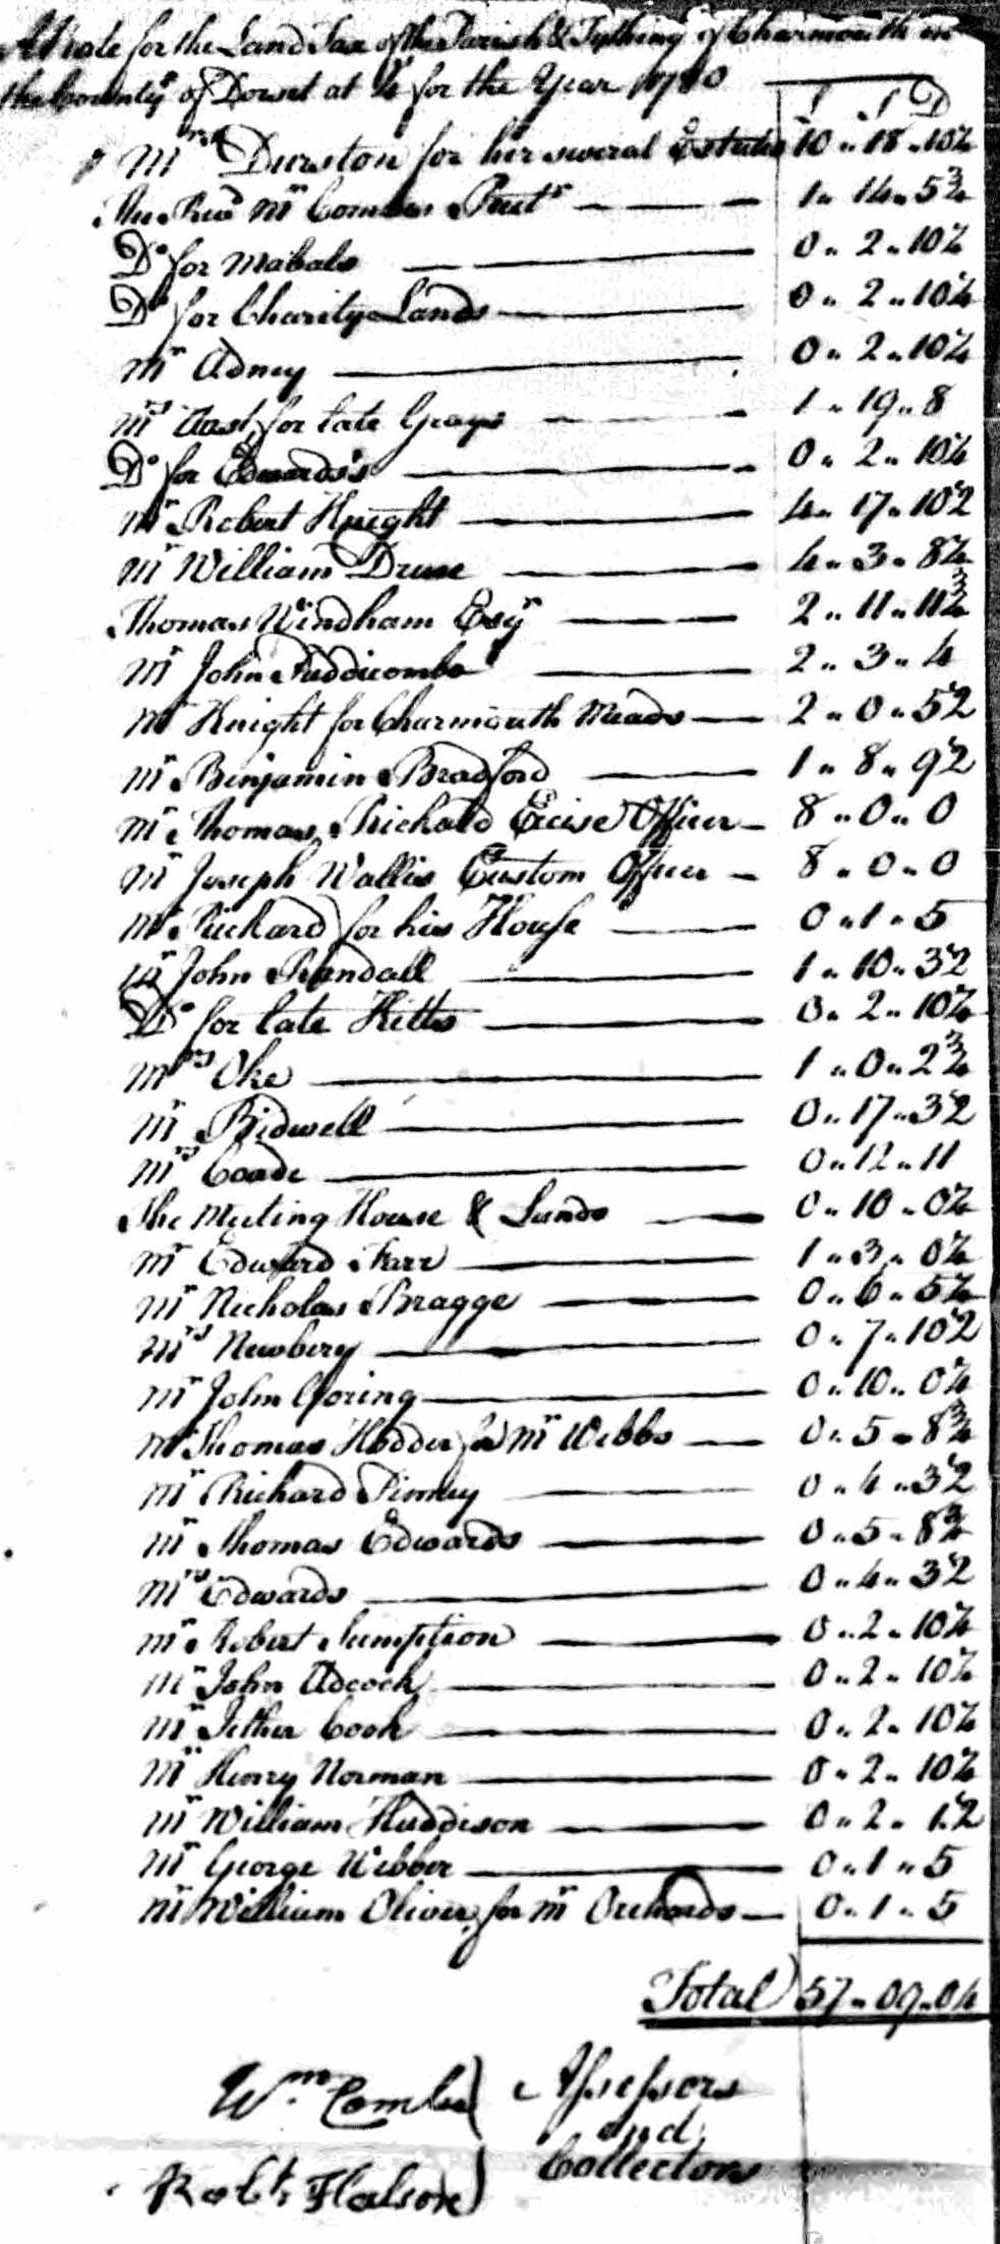 A Rate for the Land Tax of the Parish & Tything of Charmouth in
the County of Dorset at 4s for the Year 1780
£ S D
Mrs Durston for her several Estates 10 .. 18 .. 10¼
The Revd Mr Combes 1 .. 14 .. 5¾
Do for Mabals 0 .. 2 .. 10¼
Do for Charity Lands 0 .. 2 .. 10¼
Mr Adney 0 .. 2 .. 10¼
Mrs for late Grays 1 .. 19 .. 8
Do for Edwards's 0 .. 2 .. 10¼
Mr Robert Knight 4 .. 17 .. 10½
Mr William Druse 4 .. 3 .. 8¼
Thomas Windham Esqr 2 .. 11 .. 11¾
Mr John Puddicombe 2 .. 3 .. 4
Mr Knight for Charmouth Meads 2 .. 0 .. 5½
Mr Benjamin Bradford 1 .. 8 .. 9½
Mr Thomas Rickard Excise Officer 8 .. 0 .. 0
Mr Joseph Wallis Custom Officer 8 .. 0 .. 0
Mr Rickard for his House 0 .. 1 .. 5
Mr John Randall 1 .. 10 .. 3½
Do for late Kitts 0 .. 2 .. 10¼
Mrs Oke 1 .. 0 .. 2¾
Mr Bidwell 0 .. 17 .. 3½
Mrs Coade 0 .. 12 .. 11
The Meeting House & Lands 0 .. 10 .. 0¼
Mr Edward Farr 1 .. 3 .. 0¼
Mr Nicholas Bragge 0 .. 6 .. 5¼
Mrs Newbery 0 .. 7 .. 10½
Mr John Goring 0 .. 10 .. 0¼
Mr Thomas Hodder for Mr Webbs 0 .. 5 .. 8¾
Mr Richard Pinney 0 .. 4 .. 3½
Mr Thomas Edwards 0 .. 5 .. 8¾
Mrs Edwards 0 .. 4 .. 3½
Mr Robert Sumption 0 .. 2 .. 10¼
Mr John Adcock 0 .. 2 .. 10¼
Mr Jether Cook 0 .. 2 .. 10¼
Mr Henry Norman 0 .. 2 .. 10¼
Mr William Huddison 0 .. 2 .. 1½
Mr George Webber 0 .. 1 .. 5
Mr William Oliver for Mr Orchards 0 .. 1 .. 5
Total 57 .. 09 .. 0¼
Wm Combs Assessors
and
Robt Halson Collectors